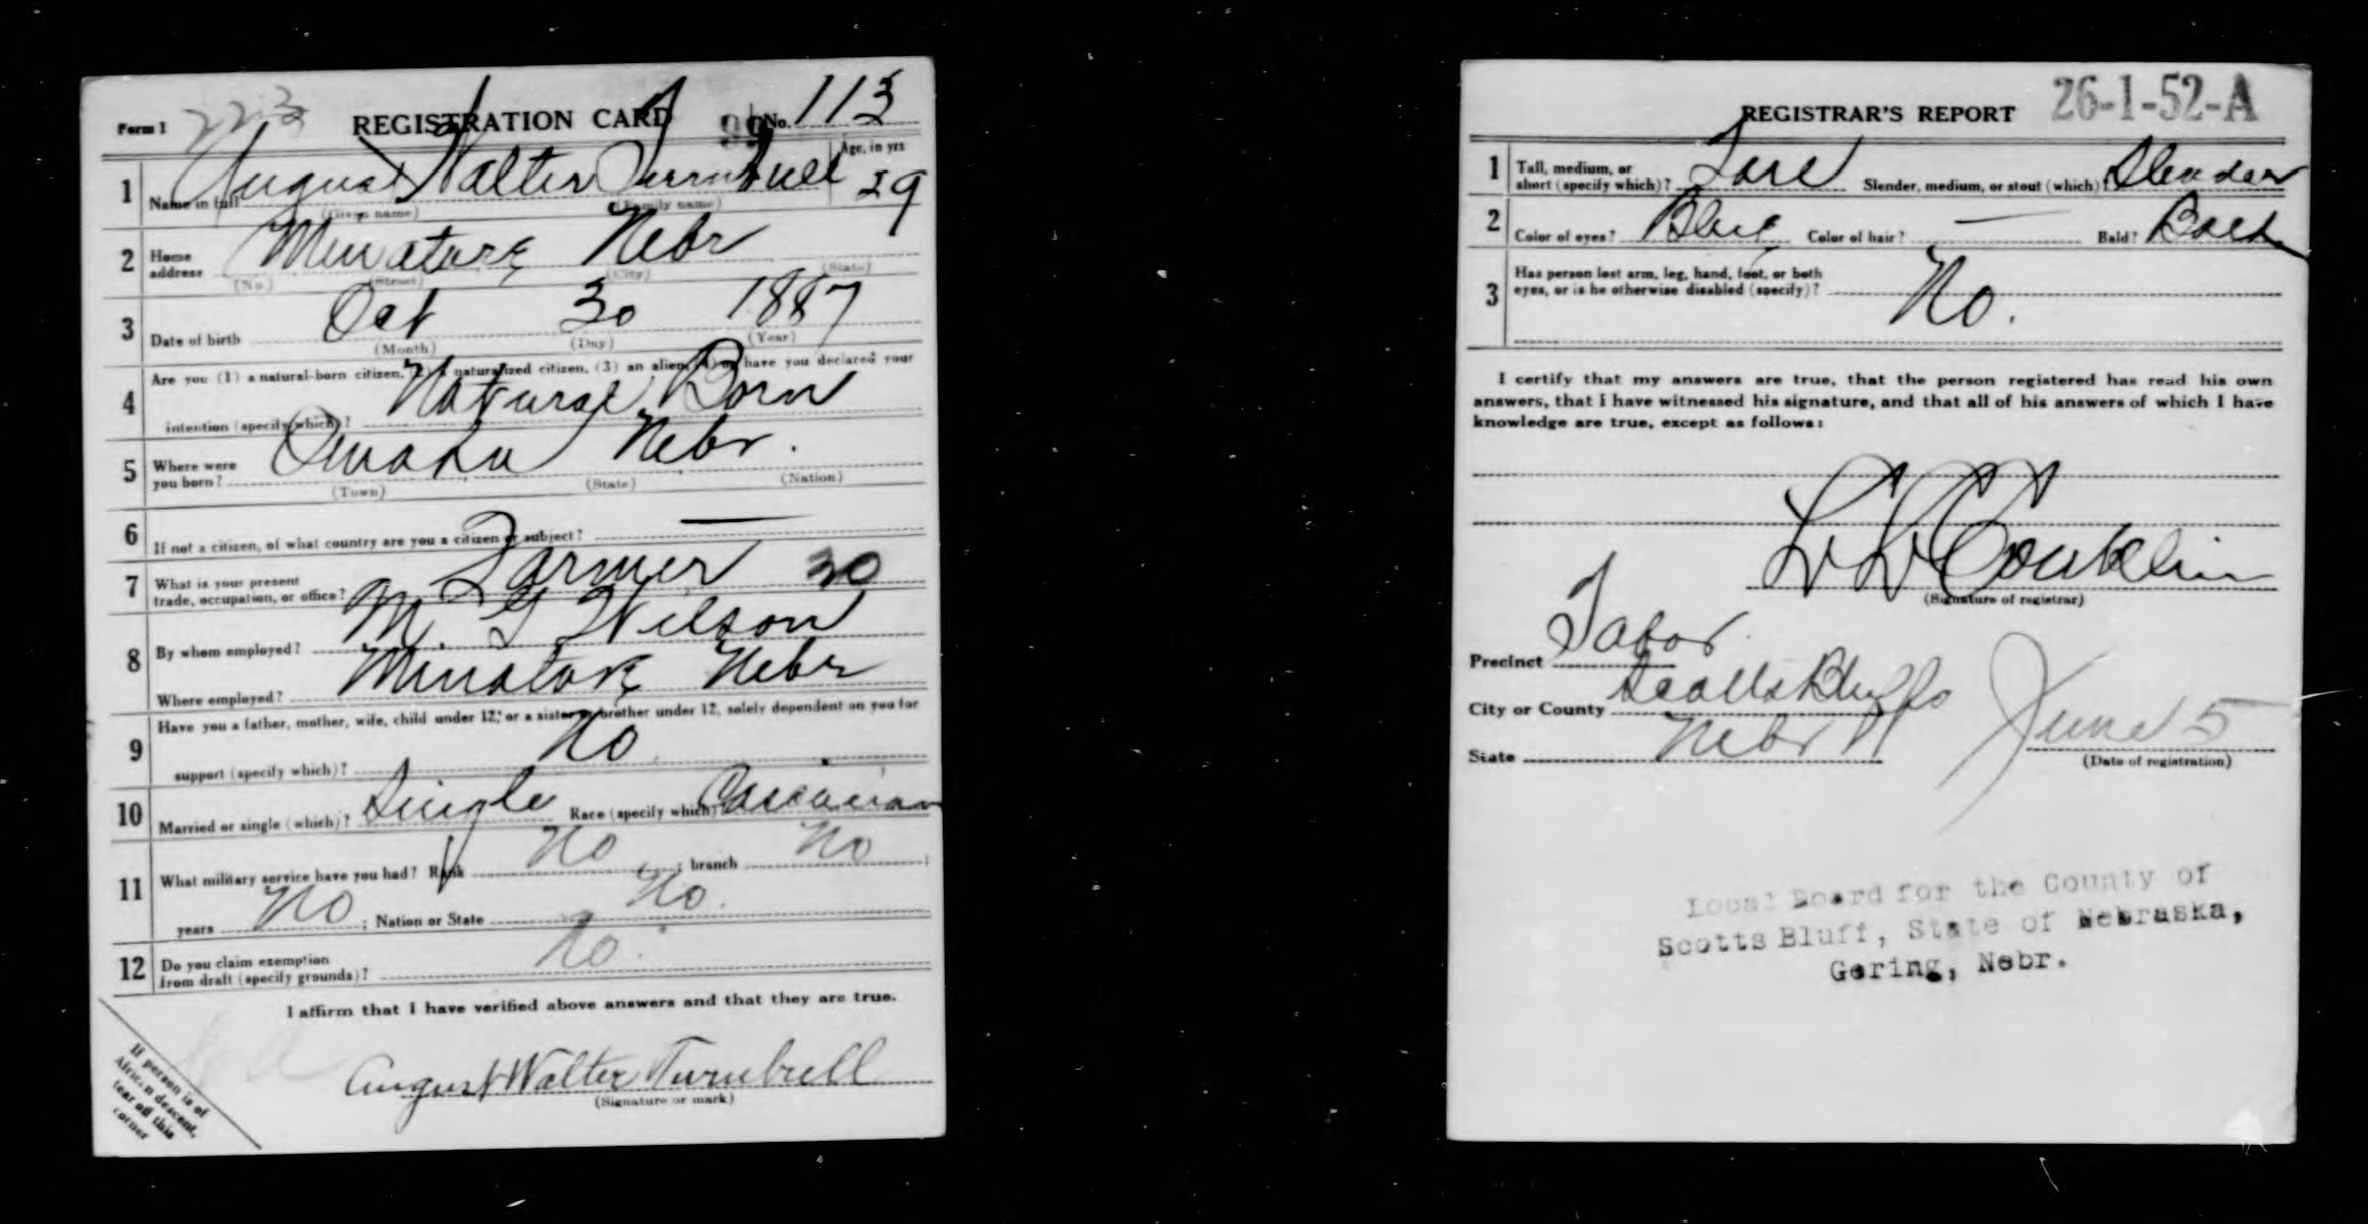 Form 1 223 REGISTRATION CARD 99 No. 113
1 Name in full August Walter Turnbull Age, in yrs 29
(Given name) (Family name)
2 Home address Minatare Nebr
(No.) (Street) (City) (State)
3 Date of birth Oct 30 1887
(Month) (Day) (Year)
4 Are you (1) a natural-born citizen, (2) a naturalized citizen, (3) an alien, (4) or have you declared your
intention (specify which)? Natural Born
5 Where were you born? Omaha Nebr.
(Town) (State) (Nation)
6 If not a citizen, of what country are you a citizen or subject? —
7 What is your present trade, occupation, or office? Farmer 30
8 By whom employed? M. G Wilson
Where employed? Minatare Nebr
9 Have you a father, mother, wife, child under 12, or a sister or brother under 12, solely dependent on you for
support (specify which)? No
10 Married or single (which)? Single Race (specify which)? Caucasian
11 What military service have you had? Rank No ; branch No ;
years No ; Nation or State No.
12 Do you claim exemption from draft (specify grounds)? No.
I affirm that I have verified above answers and that they are true.
August Walter Turnbull
(Signature or mark)
If person is of
African descent,
tear off this
corner
REGISTRAR'S REPORT 26-1-52-A
1 Tall, medium, or short (specify which)? Tall Slender, medium, or stout (which)? Slender
2 Color of eyes? Blue Color of hair? — Bald? Bald
3 Has person lost arm, leg, hand, foot, or both
eyes, or is he otherwise disabled (specify)? No.
I certify that my answers are true, that the person registered has read his own
answers, that I have witnessed his signature, and that all of his answers of which I have
knowledge are true, except as follows:
Conklin
(Signature of registrar)
Precinct Tabor
City or County Scotts Bluff
State Nebr June 5
(Date of registration)
Local Board for the County of
Scotts Bluff, State of Nebraska,
Gering, Nebr.